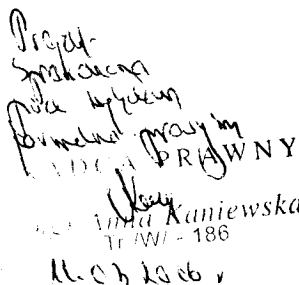 Projekt
sprawdzono
pod względem
formalno prawnym
RADCA PRAWNY
Anna Kaniewska
Tr /W/ - 186